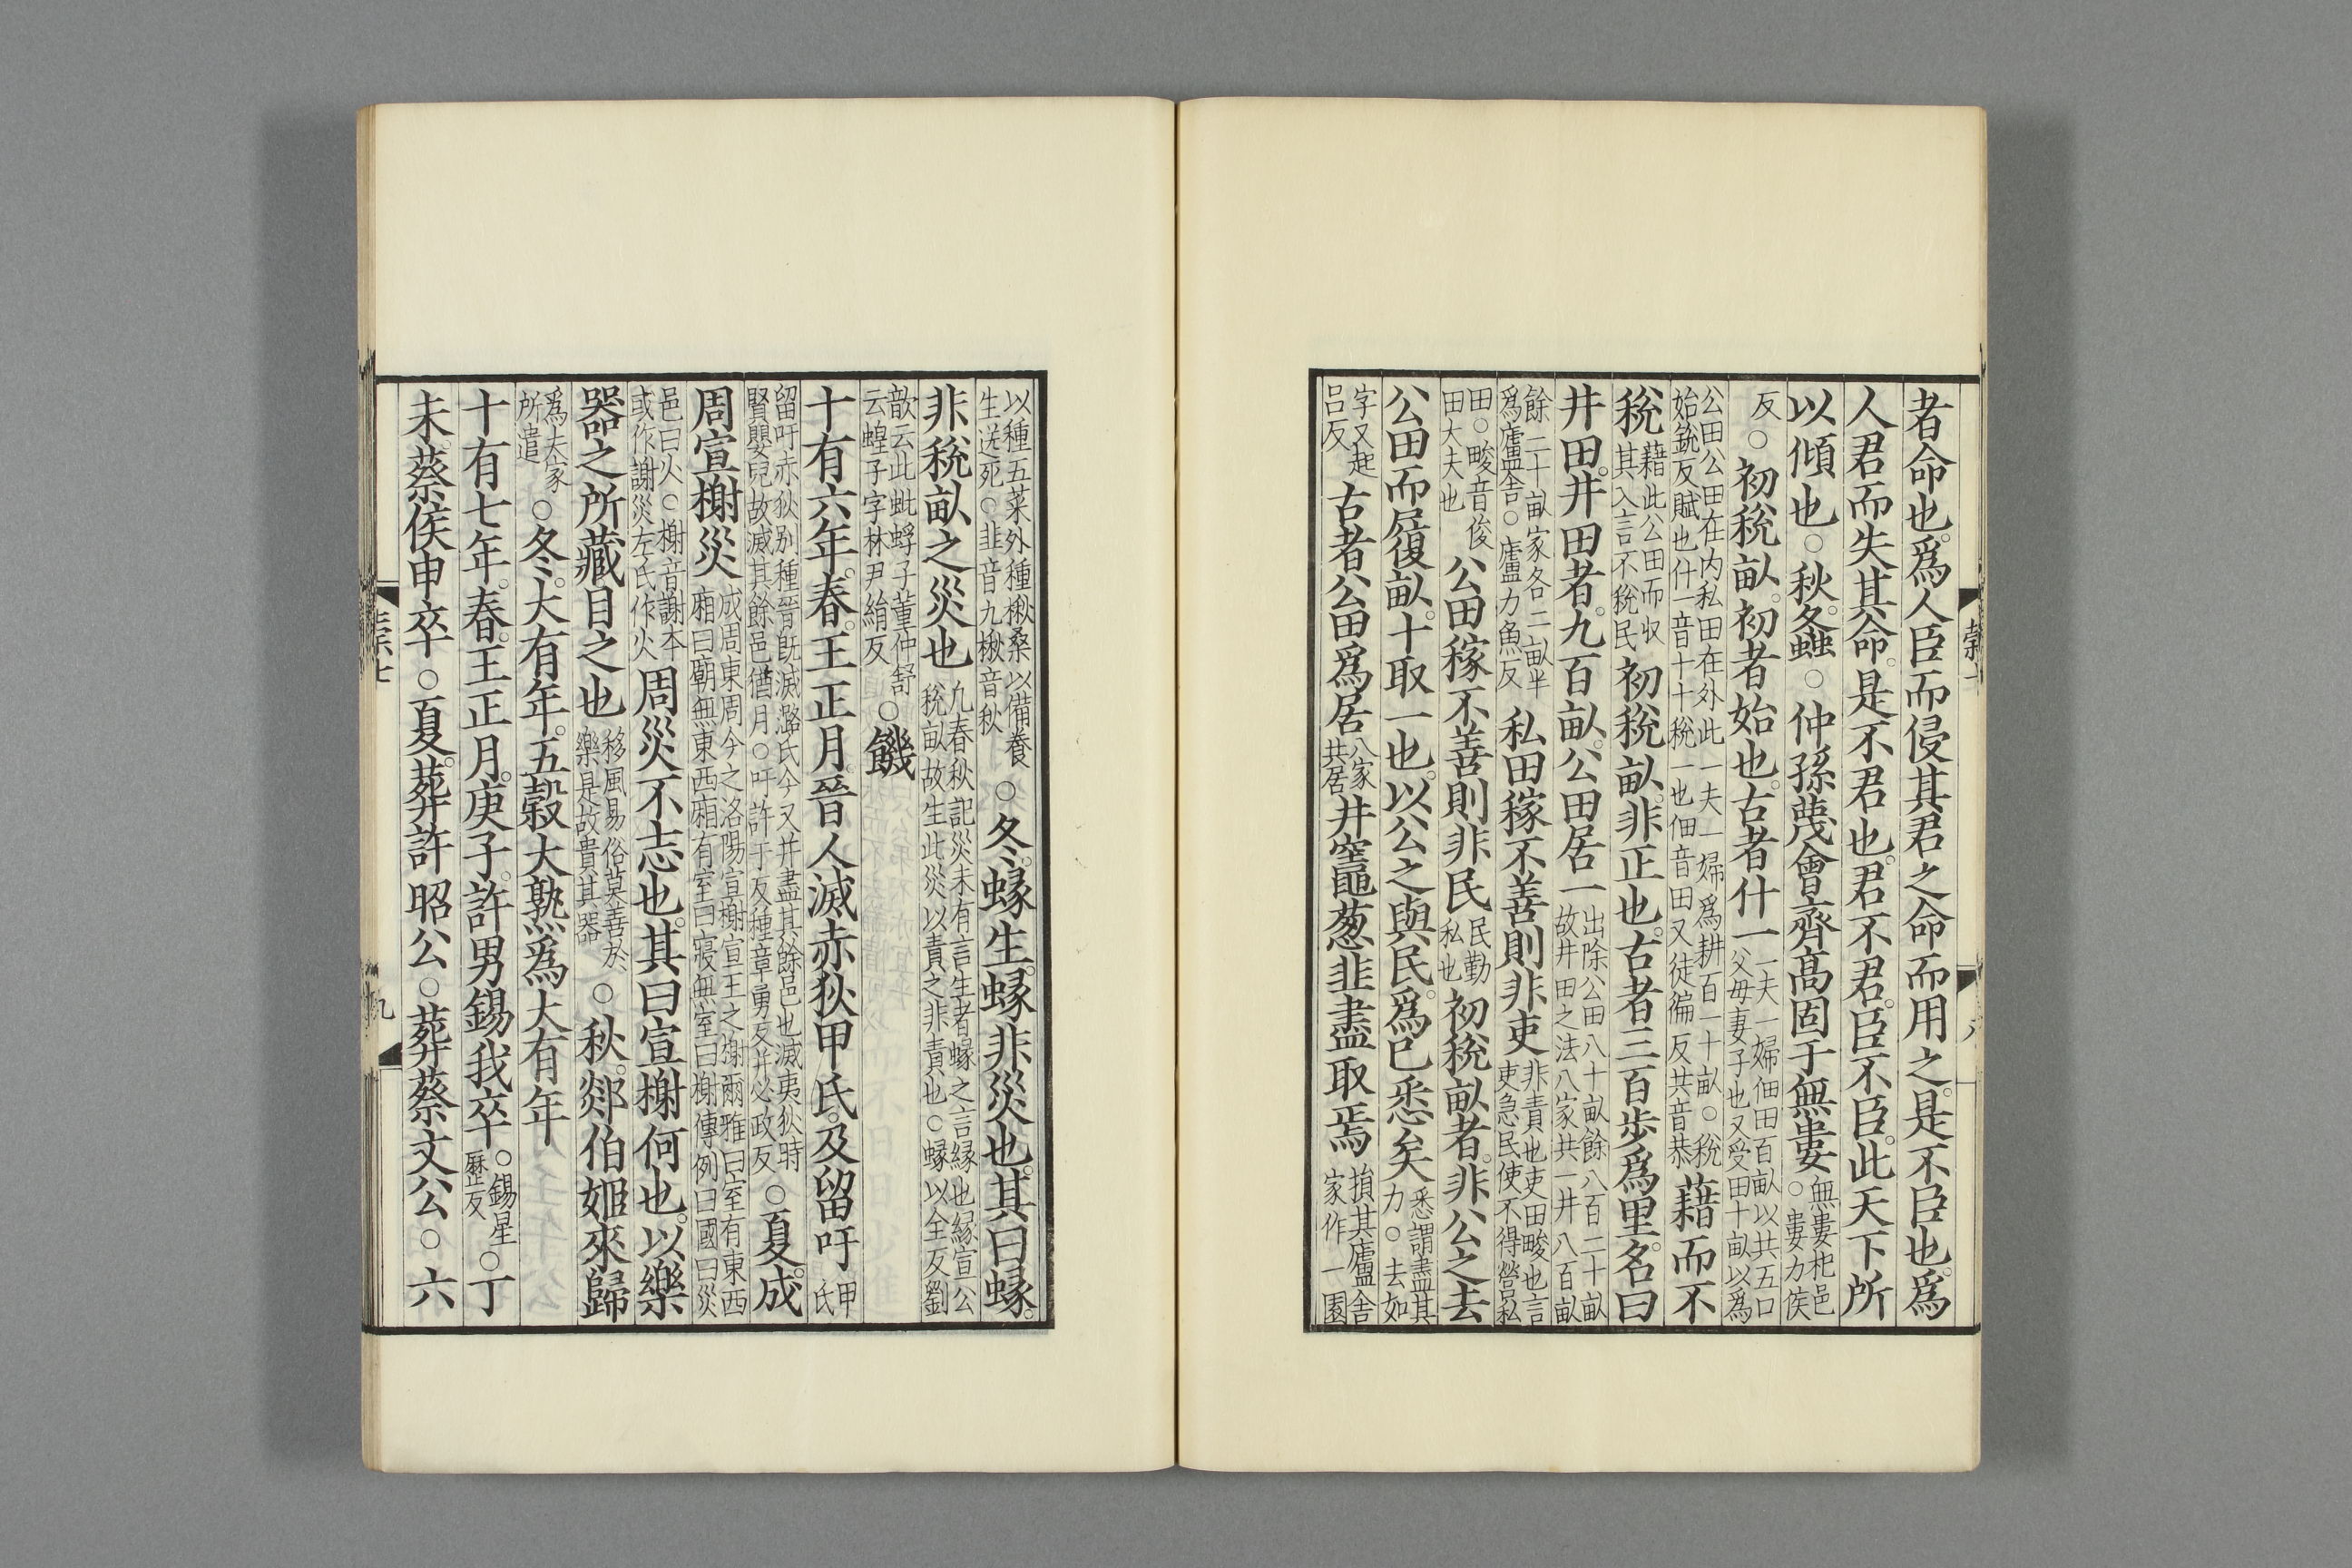 者命也。爲人臣而侵其君之命而用之。是不臣也。爲
人君而失其命。是不君也。君不君。臣不臣。此天下所
以傾也○秋。螽○仲孫蔑會齊髙固于無婁無婁杞邑○婁力侯
反○初稅畝。初者始也。古者什一一夫一婦佃田百畝以共五口父母妻子也又受田十畝以爲
公田公田在内私田在外此一夫一婦爲耕百一十畝○稅始銳反賦也什一音十十稅一也佃音田又徒徧反共音恭藉而不
稅藉此公田而収其入言不稅民初稅畝。非正也。古者三百步爲里。名曰
井田。井田者。九百畝。公田居一出除公田八十畝餘八百二十畝故井田之法八家共一井八百畝
餘二十畝家各二畝半爲廬舍○廬力魚反私田稼不善則非吏非責也吏田畯也言吏急民使不得營私
田○畯音俊田大夫也公田稼不善則非民民勤私也初稅畝者。非公之去
公田而履畝。十取一也。以公之與民。爲已悉矣悉謂盡其力○去如
字又起呂反古者公田爲居八家共居井竈葱韭盡取焉損其廬舍家作一園
以種五菜外種楸桑以備養生送死○韭音九楸音秋○冬。蝝生。蝝非災也。其曰蝝。
非稅畝之災也九春秋記災未有言生者蝝之言緣也緣宣公稅畝故生此災以責之非責也○蝝以全反劉
歆云此蚍蜉子董仲舒云蝗子字林尹絹反○饑
十有六年。春。王正月。晉人滅赤狄甲氏。及留吁甲氏
留吁赤狄别種晉旣滅潞氏今又并盡其餘邑也滅夷狄時賢嬰兒故滅其餘邑猶月○吁許于反種章勇反并必政反○夏。成
周宣榭災成周東周今之洛陽宣榭宣王之榭爾雅曰室有東西廂曰廟無東西廂有室曰寢無室曰榭傳例曰國曰災
邑曰火○榭音謝本或作謝災左氏作火周災不志也。其曰宣榭何也。以樂
器之所藏目之也移風易俗莫善於樂是故貴其器○秋。郯伯姬來歸
爲夫家所遣○冬。大有年。五穀大熟爲大有年
十有七年。春。王正月。庚子。許男錫我卒○錫星歷反○丁
未。蔡侯申卒○夏。葬許昭公○葬蔡文公○六
九